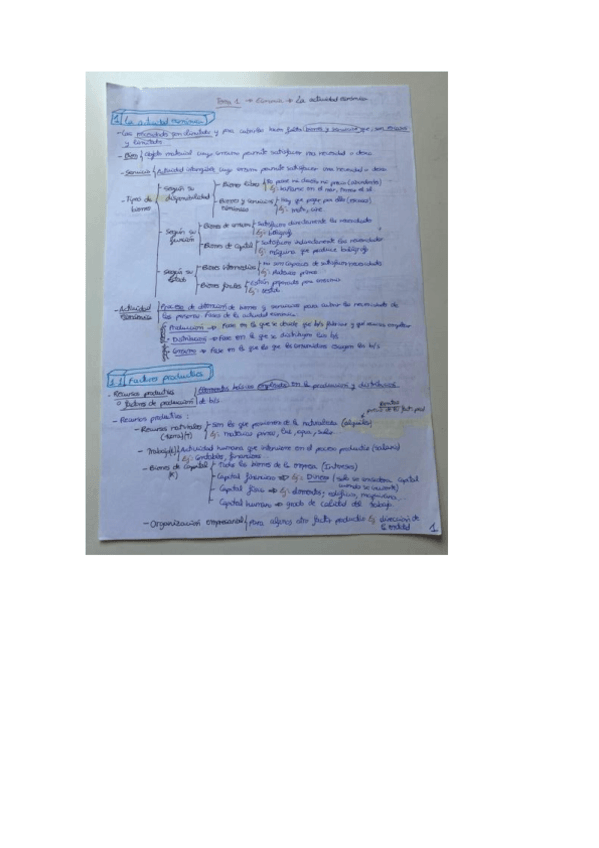 Tema 1 → Economía → La actividad económica
1 La actividad económica
- Los recursos son limitados y para satisfacer hacen falta bienes y servicios que son escasos
y limitados.
- Bien Objeto material cuyo consumo permite satisfacer una necesidad o deseo
- Servicio Actividad intangible cuyo consumo permite satisfacer una necesidad o deseo
- Tipos de bienes
- Según su disponibilidad
- Bienes libres No posee ni dueño ni precio (abundantes)
Ej: bañarse en el mar, tomar el sol
- Bienes y servicios económicos Hay que pagar por ellos (escasos)
Ej: moto, cine
- Según su función
- Bienes de consumo Satisfacen directamente las necesidades
Ej: bolígrafo
- Bienes de capital Satisfacen indirectamente las necesidades
Ej: máquina que produce bolígrafos
- Según su estado
- Bienes intermedios No son capaces de satisfacer necesidades
Ej: materias primas
- Bienes finales Están preparados para consumirse
Ej:
- Actividad económica Proceso de obtención de bienes y servicios para cubrir las necesidades de
las personas. Fases de la actividad económica:
Producción → Fase en la que se decide que b/s fabricar y que recursos emplear
Distribución → Fase en la que se distribuyen los b/s
Consumo → Fase en la que los consumidores los b/s
1.1 Factores productivos
- Recursos productivos o factores de producción Elementos básicos empleados en la producción y distribución
de b/s
- Recursos productivos:
Rentas
- Recursos naturales (tierra)(T) Son los que provienen de la naturaleza (alquiler)
Ej: materias primas, luz, agua, suelo
- Trabajo(L) Actividad humana que interviene en el proceso productivo (salario)
Ej: contables, financieros...
- Bienes de capital (K)
- Todos los bienes de la empresa (Intereses)
- Capital financiero → Ej: Dinero (solo se considera capital
cuando se invierte)
- Capital físico → Ej: elementos; edificios, maquinaria,...
- Capital humano → grado de calidad del trabajo
- Organización empresarial Ej dirección de
la entidad
1